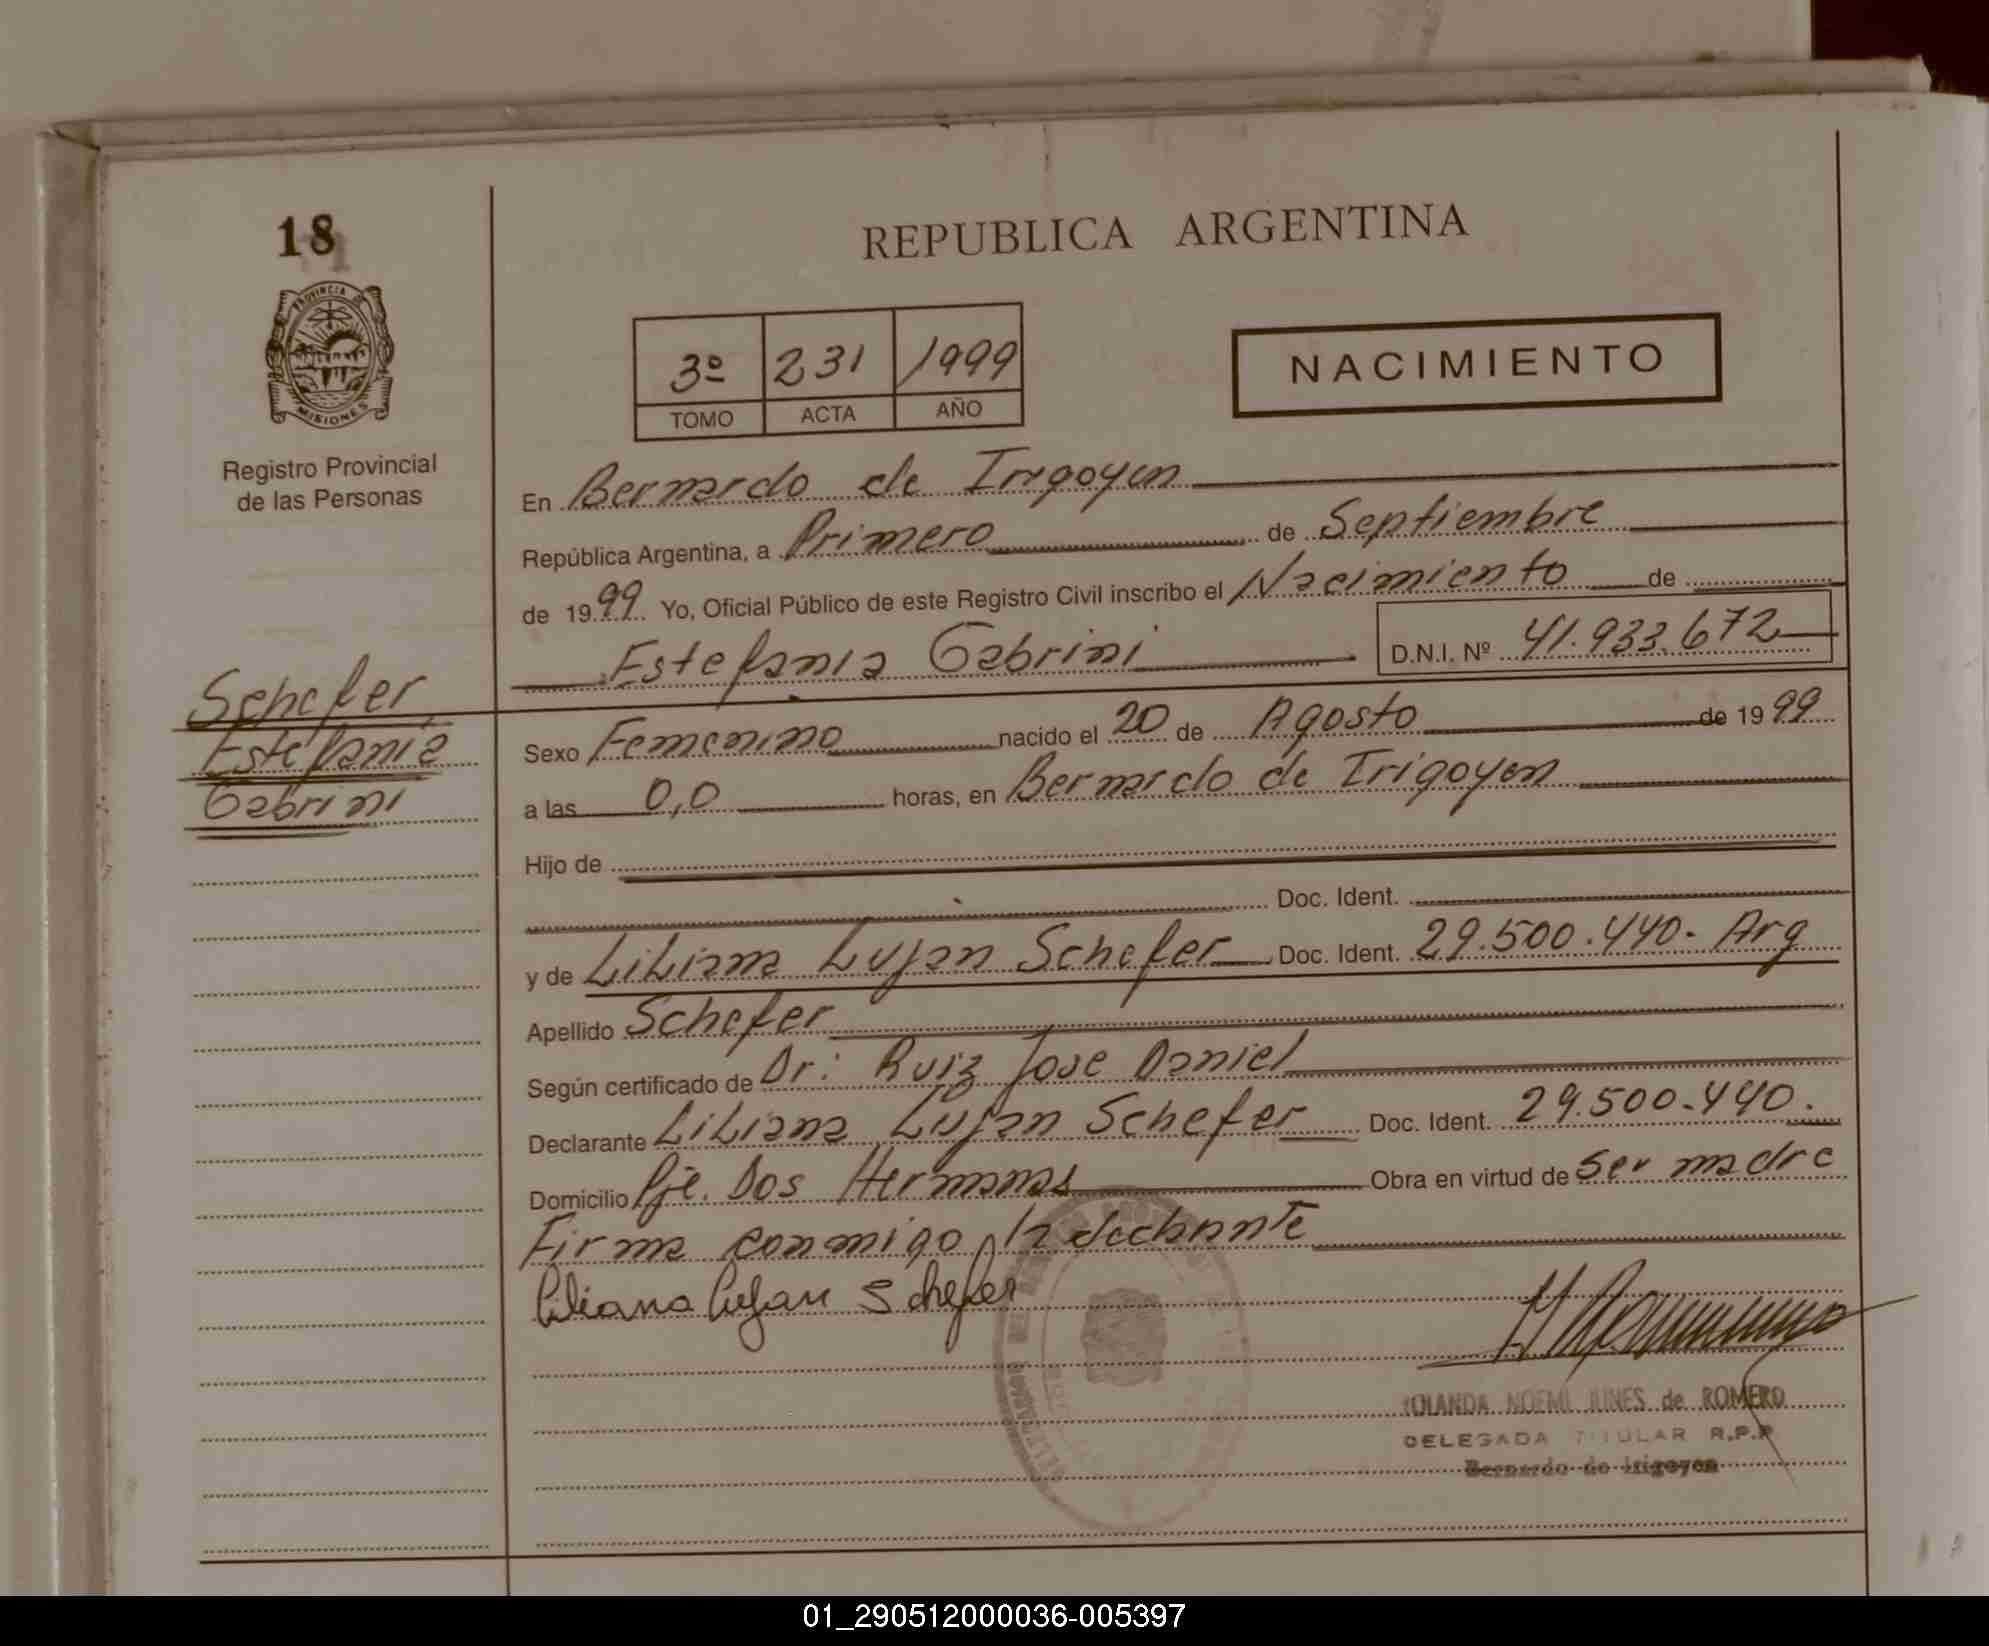 18
REPUBLICA ARGENTINA
PROVINCIA DE
MISIONES
Registro Provincial
de las Personas
3º 231 1999
TOMO ACTA AÑO
NACIMIENTO
En Bernardo de Irigoyen
República Argentina, a Primero de Septiembre
de 1999 Yo, Oficial Público de este Registro Civil inscribo el Nacimiento de
Estefania Gabrini D.N.I. Nº 41.933.672
Schefer,
Estefania
Gabrini
Sexo Femenino nacido el 20 de Agosto de 1999
a las 0,0 horas, en Bernardo de Irigoyen
Hijo de
Doc. Ident.
y de Liliana Lujan Schefer Doc. Ident. 29.500.440- Arg
Apellido Schefer
Según certificado de Dr: Ruiz Jose Daniel
Declarante Liliana Lujan Schefer Doc. Ident. 29.500.440.
Domicilio Pje. Dos Hermanas Obra en virtud de Ser madre
Firma conmigo, la
Liliana Lujan Schefer
YOLANDA NOEMI JUNES de ROMERO
DELEGADA TITULAR R.P.P
Bernardo de Irigoyen
01_290512000036-005397